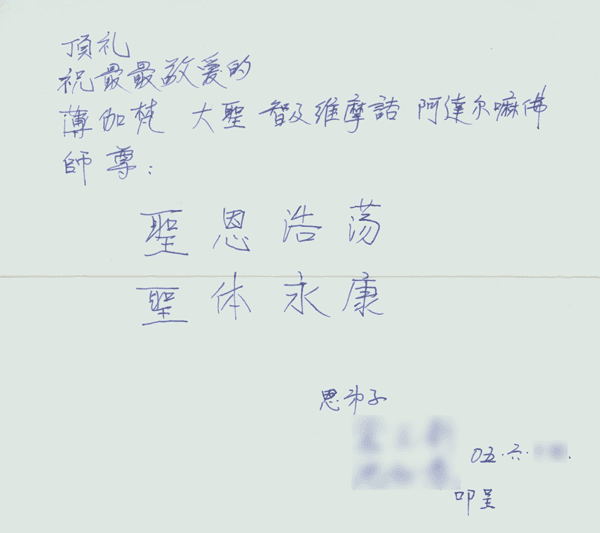 頂礼
祝最最敬爱的
薄伽梵 大聖 智及維摩詰 阿達尔嘛佛
師尊:
聖恩浩荡
聖体永康
愚弟子
0五.六.
叩呈